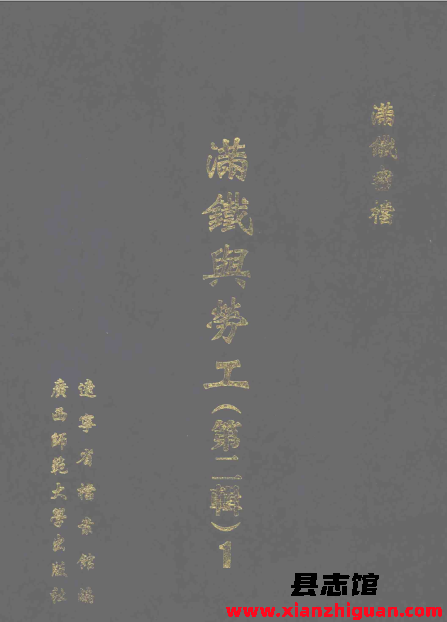 滿鐵密檔
滿鐵與勞工(第二輯)1
遼寧省檔案館編
廣西師範大學出版社
县志馆
www.xianzhiguan.com